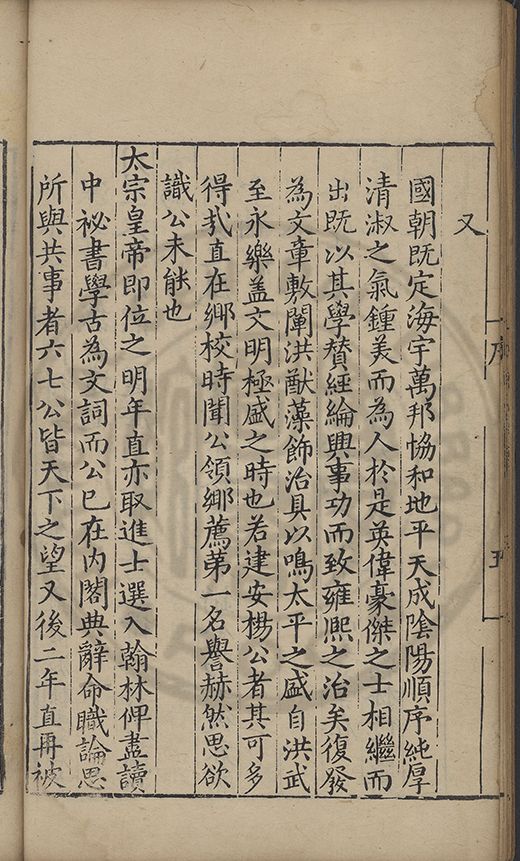 又
國朝既定海宇萬邦協和地平天成陰陽順序純厚
清淑之氣鍾美而為人於是英偉豪傑之士相繼而
出既以其學賛經綸興事功而致雍熈之治矣復發
為文章敷闡洪猷藻飾治具以鳴太平之盛自洪武
至永樂盖文明極盛之時也若建安楊公者其可多
得㢤直在鄉校時聞公領鄉薦苐一名譽赫然思欲
識公未能也
太宗皇帝即位之明年直亦取進士選入翰林俾盡讀
中祕書學古為文詞而公已在内閣典辭命職論思
所與共事者六七公皆天下之望又後二年直再被
序
五